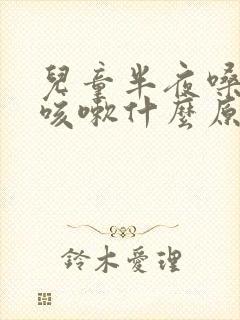 兒童半夜嗓
咳嗽什麼原
鈴木愛理